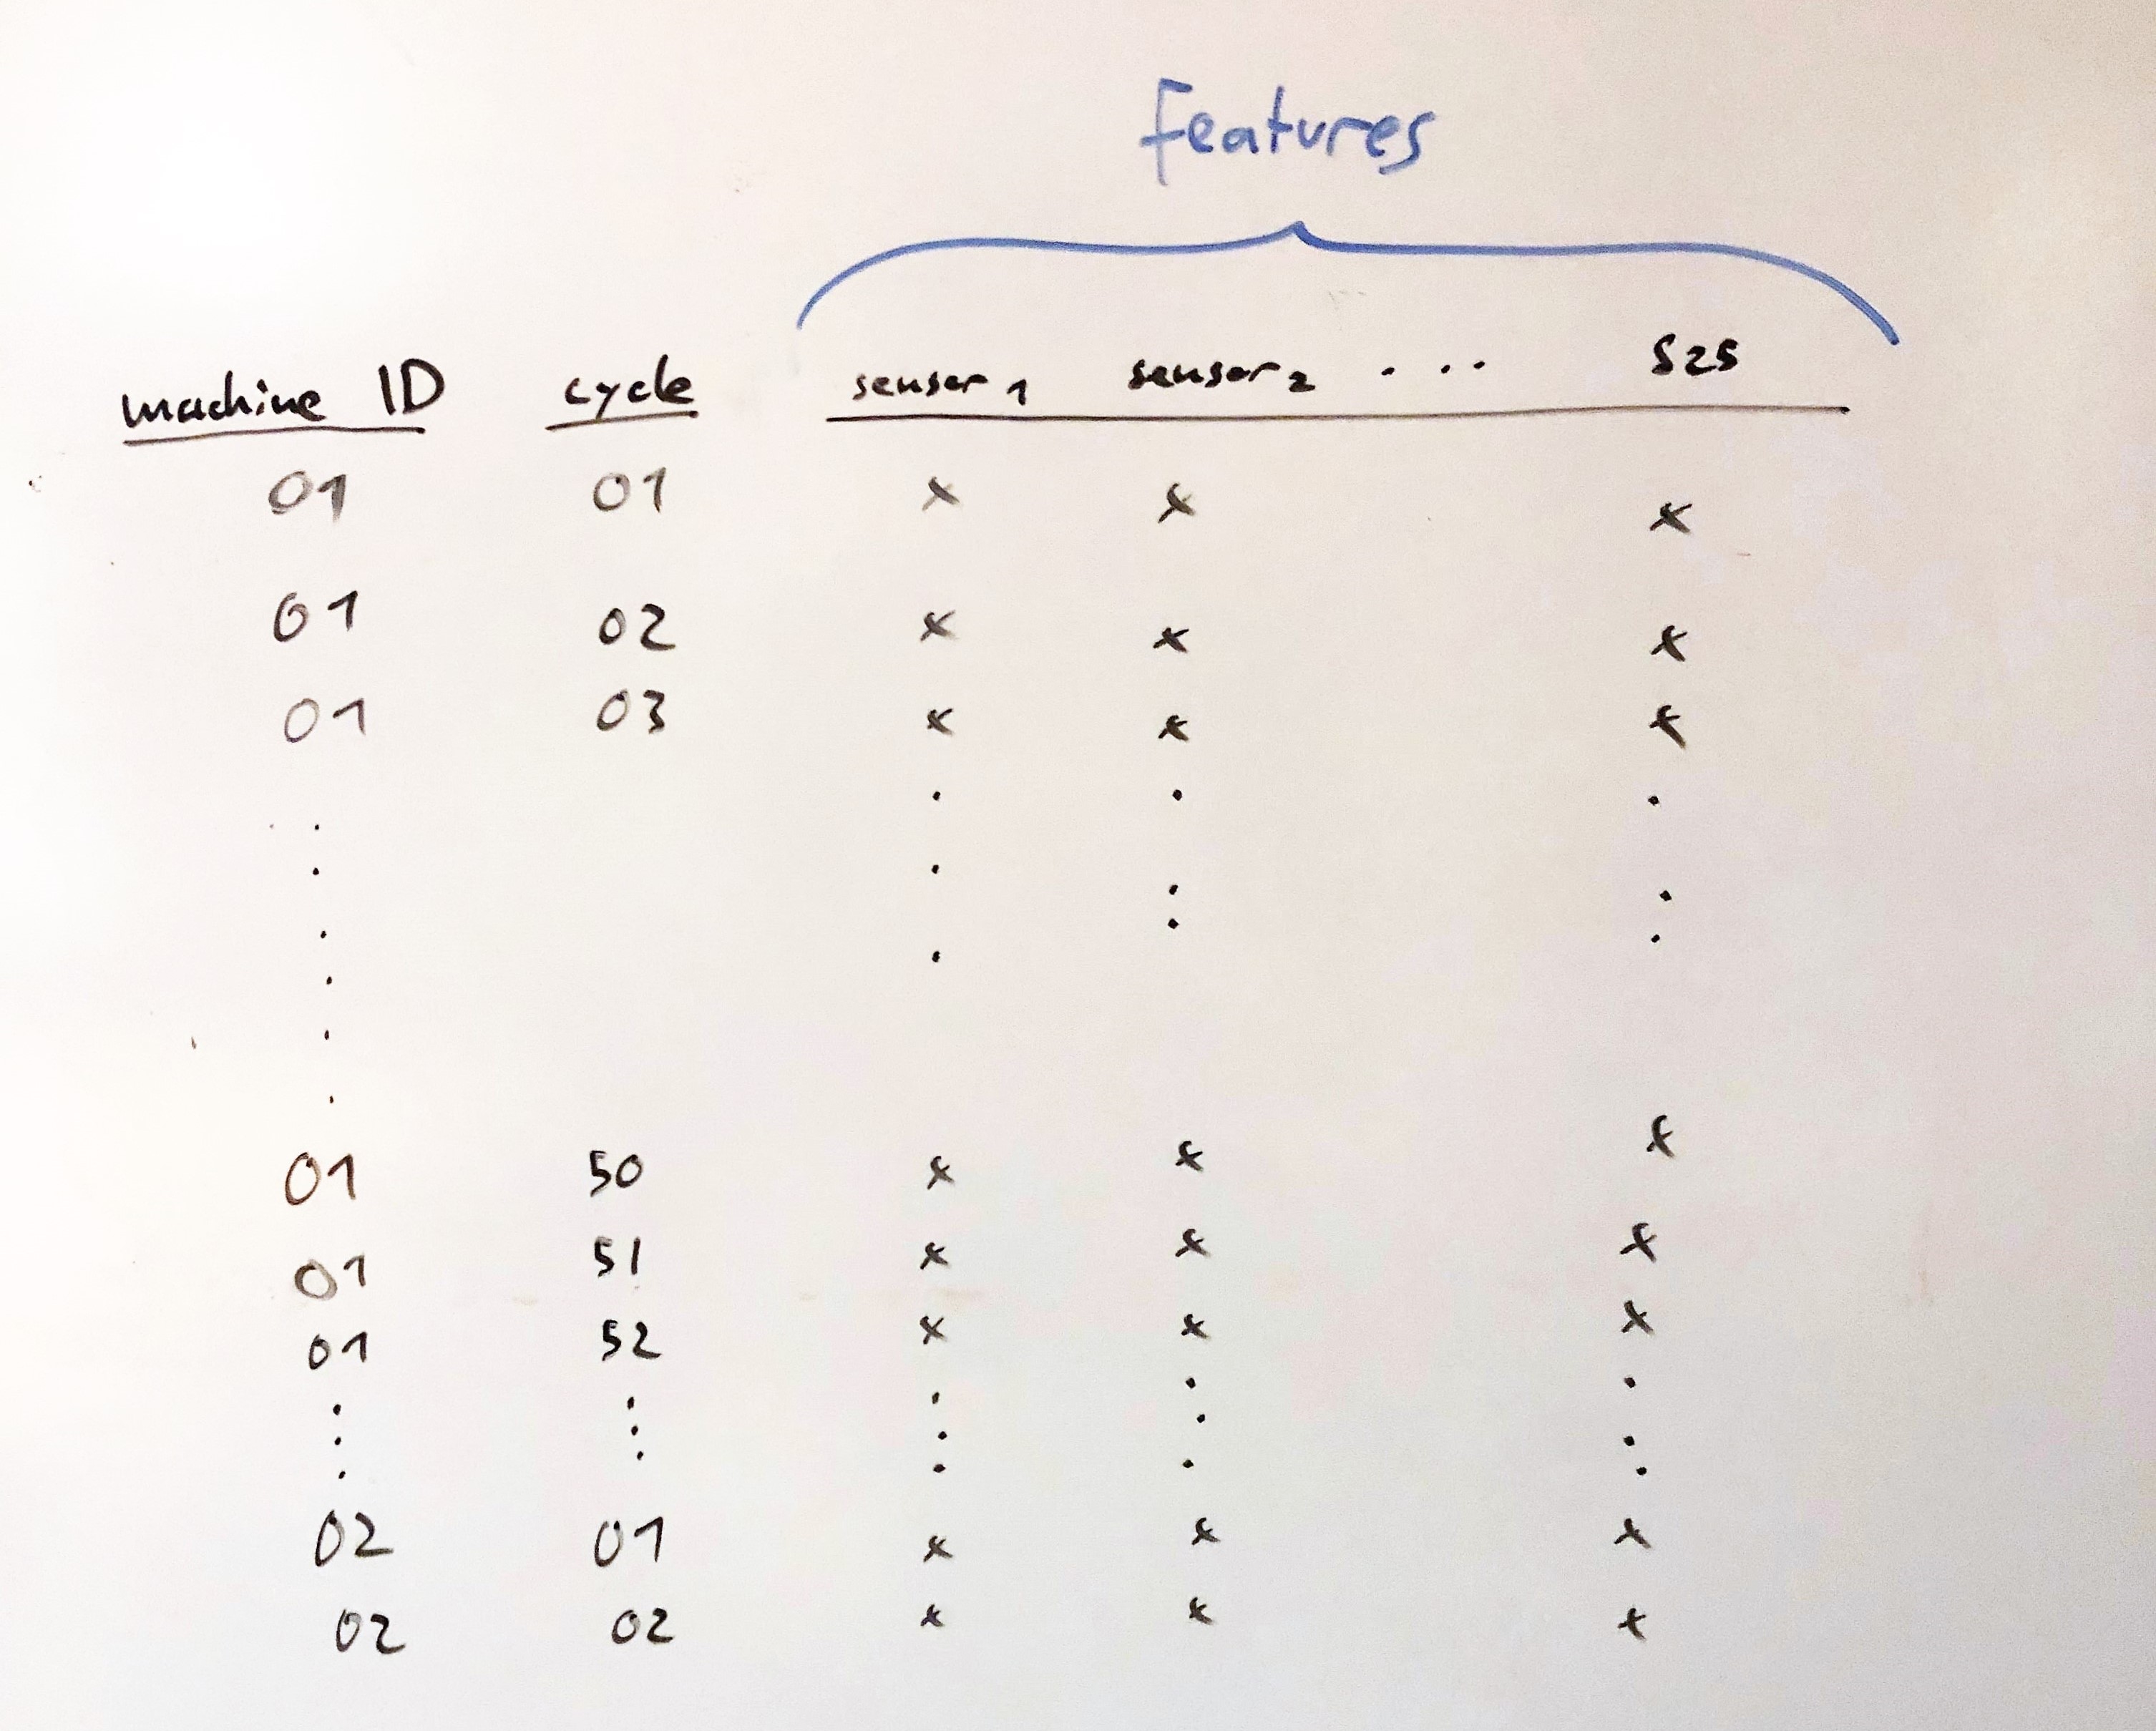 Features
machine ID cycle sensor 1 sensor 2 . . . S25
01 01 x x x
01 02 x x x
01 03 x x x
01 50 x x x
01 51 x x x
01 52 x x x
02 01 x x x
02 02 x x x